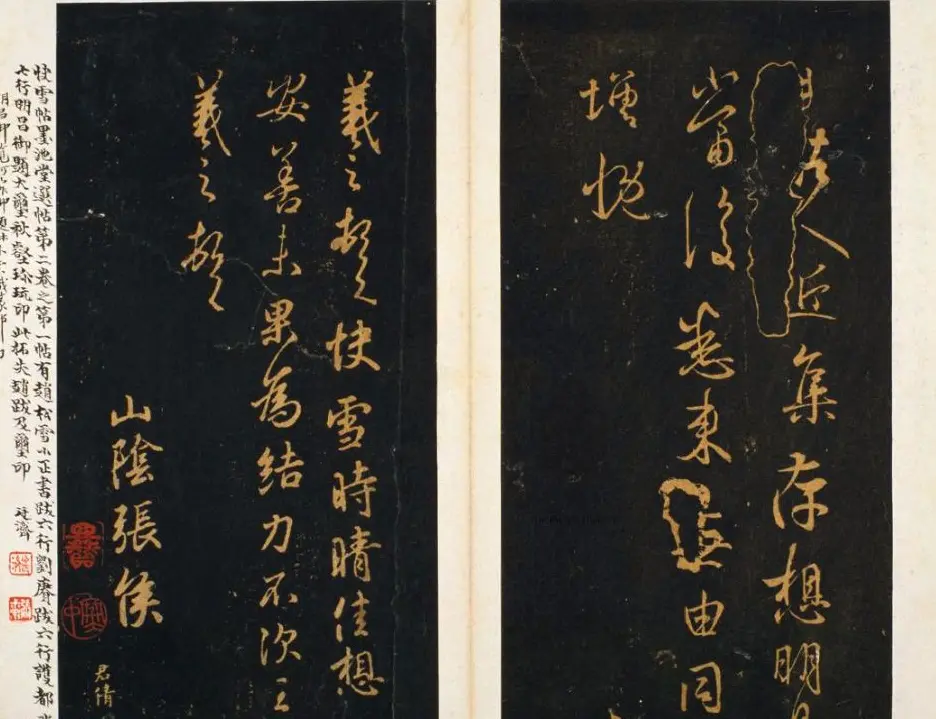 人近集存想明
當復悉来由同
增慨
羲之頓首快雪時晴佳想
安善未果為結力不次王
羲之頓首
山陰張侯
君倩
快雪帖墨池堂選帖第二卷之第一帖有趙松雪小正書跋六行劉賡跋六行護都
七行明昌御題大璽秋壑珍玩印此拓失趙跋及璽印 廷濟